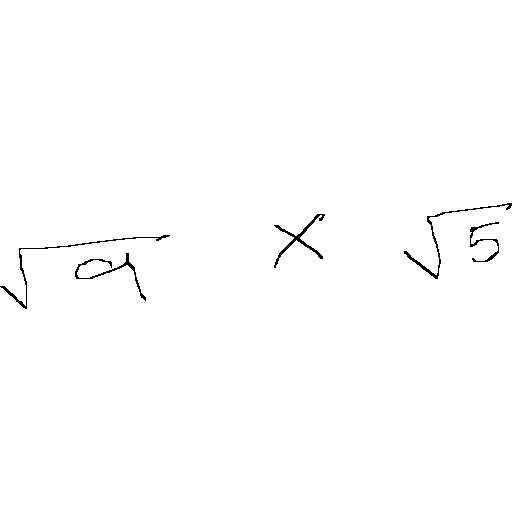 √9 × √5